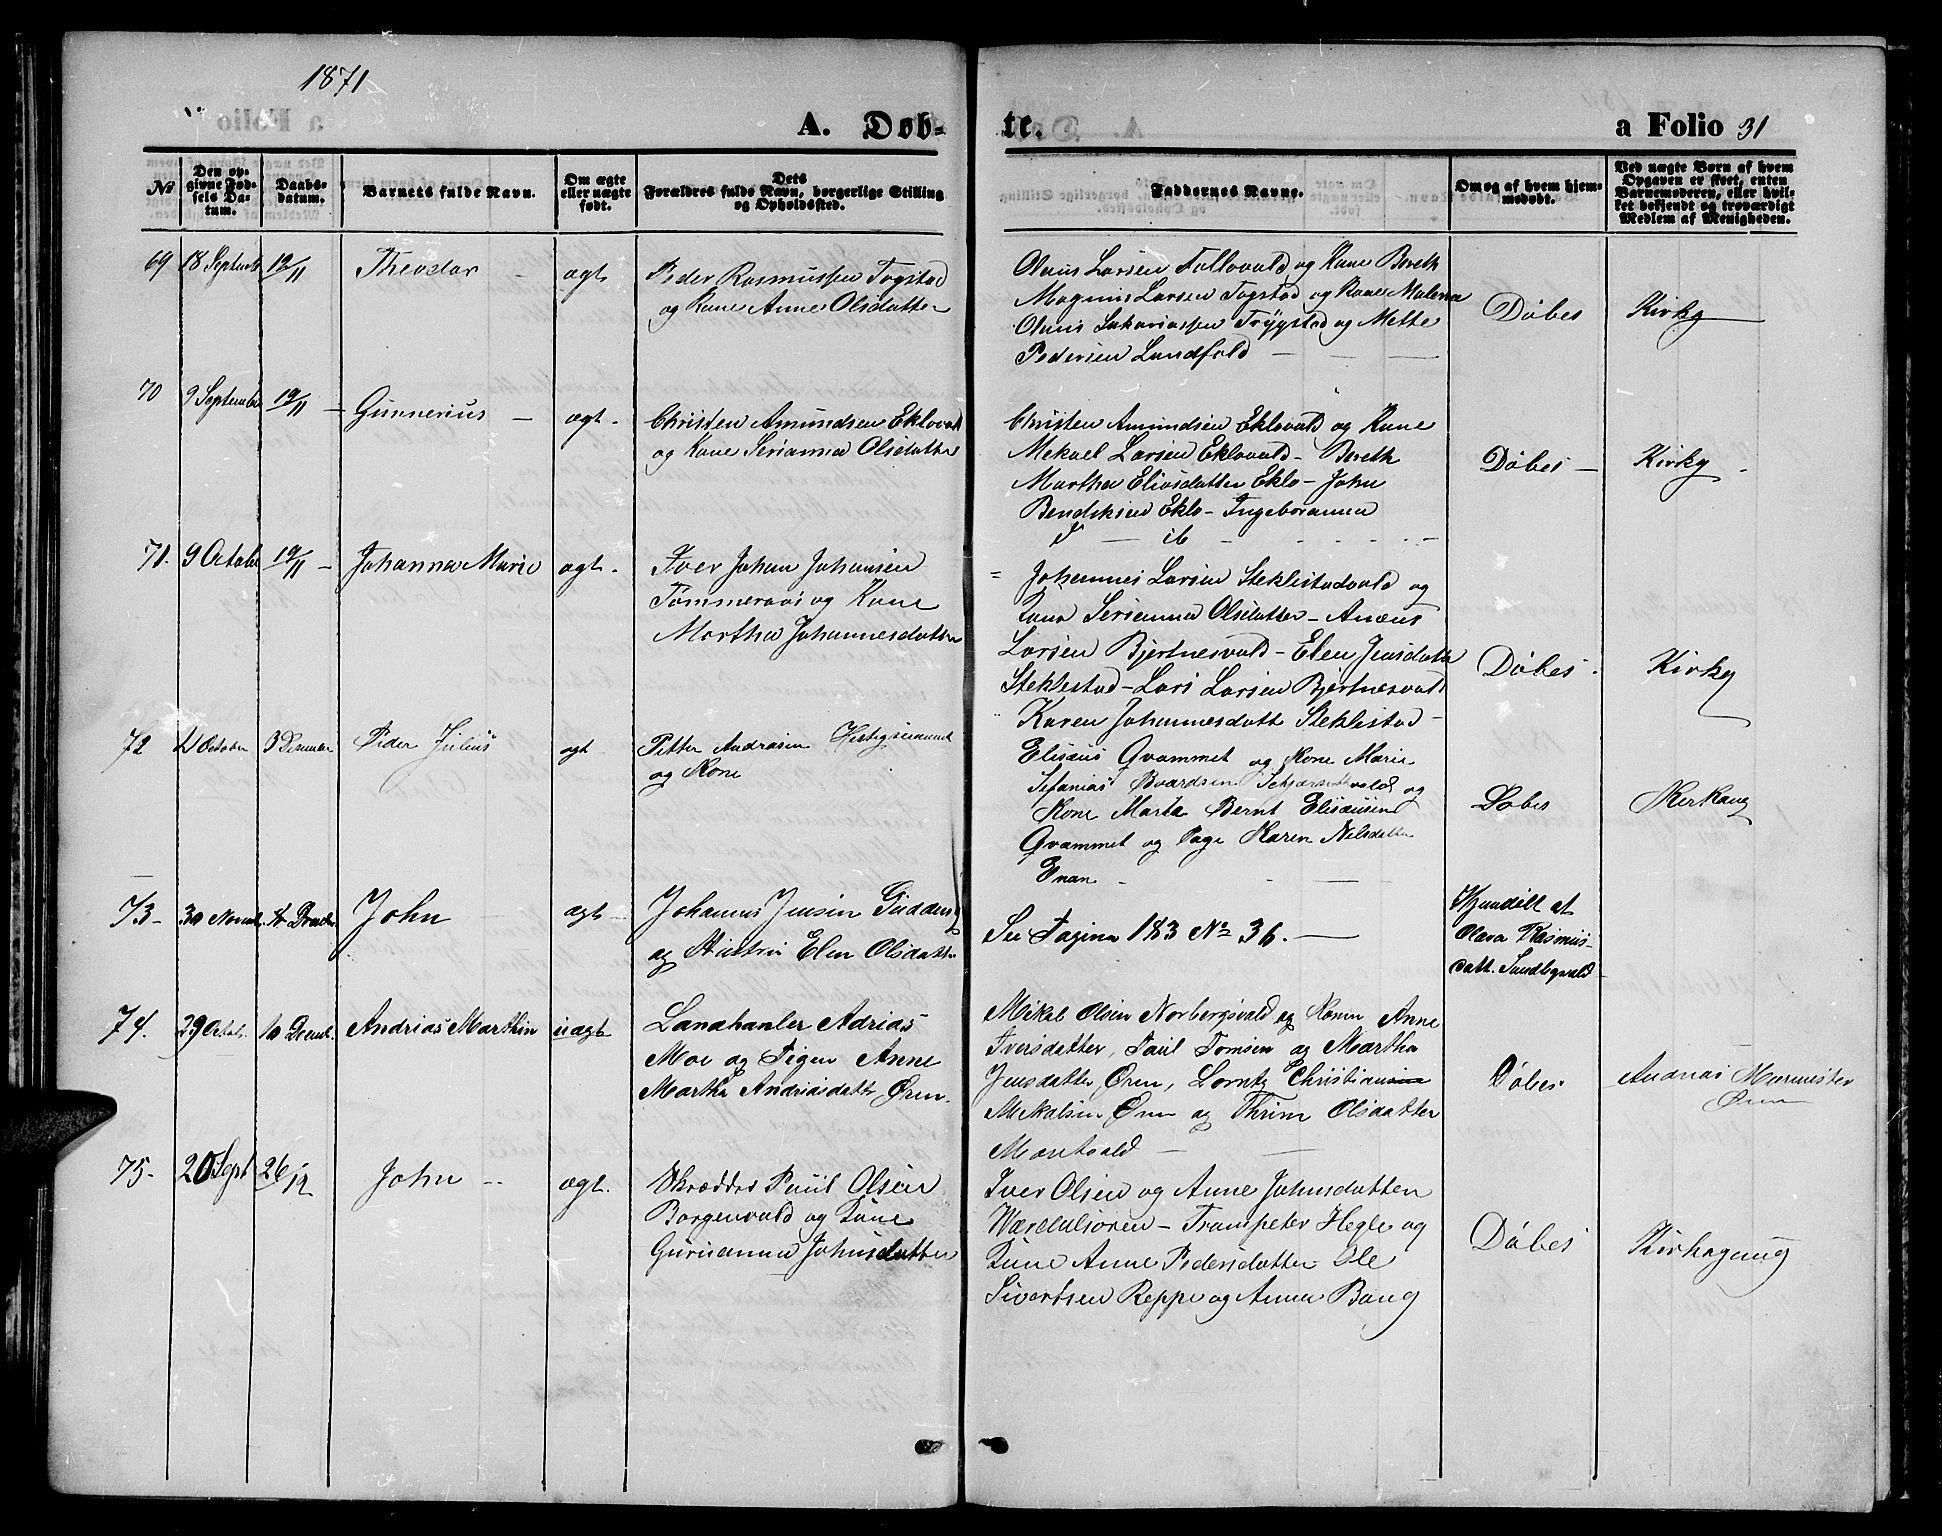 1871
A. Døb-
te.
a Folio 31
No
Den op-
givne Fød-
sels Da-
tum.
Daabs-
datum.
Barnets fulde Navn.
Om ægte
eller uægte
født.
Dets
Forældres fulde Navn, borgerlige Stilling
og Opholdssted.
Faddernes Navne.
Om og af hvem hjem-
medøbt.
Ved uægte Børn af hvem
Opgaven er skeet, enten
Barnemoderen, eller hvil-
ket bekjendt og troværdigt
Medlem af Menigheden.
69 18 Septemb 19/11 Theodor - ægt
Peder Rasmussen Togstad
og Kone Anne Olsdatter
Olaus Larsen Follovald og Kone Bereth
Magnus Larsen Togstad og Kone Malena
Olaus Sakariassen Trygstad og Mette
Pedersen Landfald
Døbes Kirkg
70 9 September 19/11 - Gunnerius - ægt -
Christen Amundsen Eklovald
og Kone Serianna Olsdatter
Christen Amundsen Eklovald og Kone
Mekael Larsen Eklovald - Bereth
Martha Eliasdatter Eklo - John
Bendiksen Eklo - Ingeboranna
d - ib -
Døbes - Kirkg -
71. 9 October 19/11 - Johanna Marie ægt -
Iver Johan Johansen
Tømmeraas og Kone
Martha Johannesdatter
= Johannes Larsen Steklestadvald og
Kone Serianna Olsdatter - Anæus
Larsen Bjertnesvald - Elen Jensdatte
Steklestad - Lars Larsen Bjertnesvald
Karen Johannesdatt Steklestad -
Døbes - Kirkg
72 4 October 3 Desember Peder Julius ægt
Petter Andrasen
og Kone
Elisæus Qvammet og Kone Marie
Sefanias Baardsen og
Kone Marta Bernt Elisæusen
Qvammet og Page Karen Nelsdatter
Enan -
Døbes Kirkang
73 - 30 Novemb. 4 Decembr John ægt -
Johannes Jensen Gudding
og Hustru Elen Olsdatter
See Pagina 183 No 36. -
Hjemdøbt af
Olava Rasmus-
datt. Sundbyvald -
74. 29 Octob. 10 Decemb. Andrias Marthin uægt
Landhanler Adrias
Moe og Pigen Anne
Martha Andriasdatte Øren.
Mikal Olsen Norbergsvald og Konen Anne
Iversdatter, Paul Tomsen og Martha
Jensdatter Øren, Lorntz Christian
Mekalsen Øren og Thrine Olsdatter
Maritvald -
Døbes Andrias Marmester
Øren
75. 20 Sept 26/12 John - - ægt.
Skrædder Paul Olsen
Borgenvald og Kone
Gurianna Johnsdatter
Iver Olsen og Anne Johnsdatter
Værdalsøren - Trompeter Hegle og
Kone Anne Pedersdatter Ole
Sivertsen Reppe og Anna Bang
Døbes Kirkegang